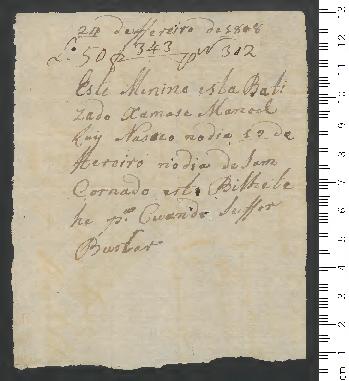 24 de Fereiro de 1808
L.º 50 p 343 N 302
Este Menino esta Bati
zado xamase Manoel
Luy Nasceo nodia 12 de
Fereiro nodia de Sam
Cornado este Bilhete
he p.ª Cuando Suffor
Buscar
cm 1 2 3 4 5 6 7 8 9 10 11 12